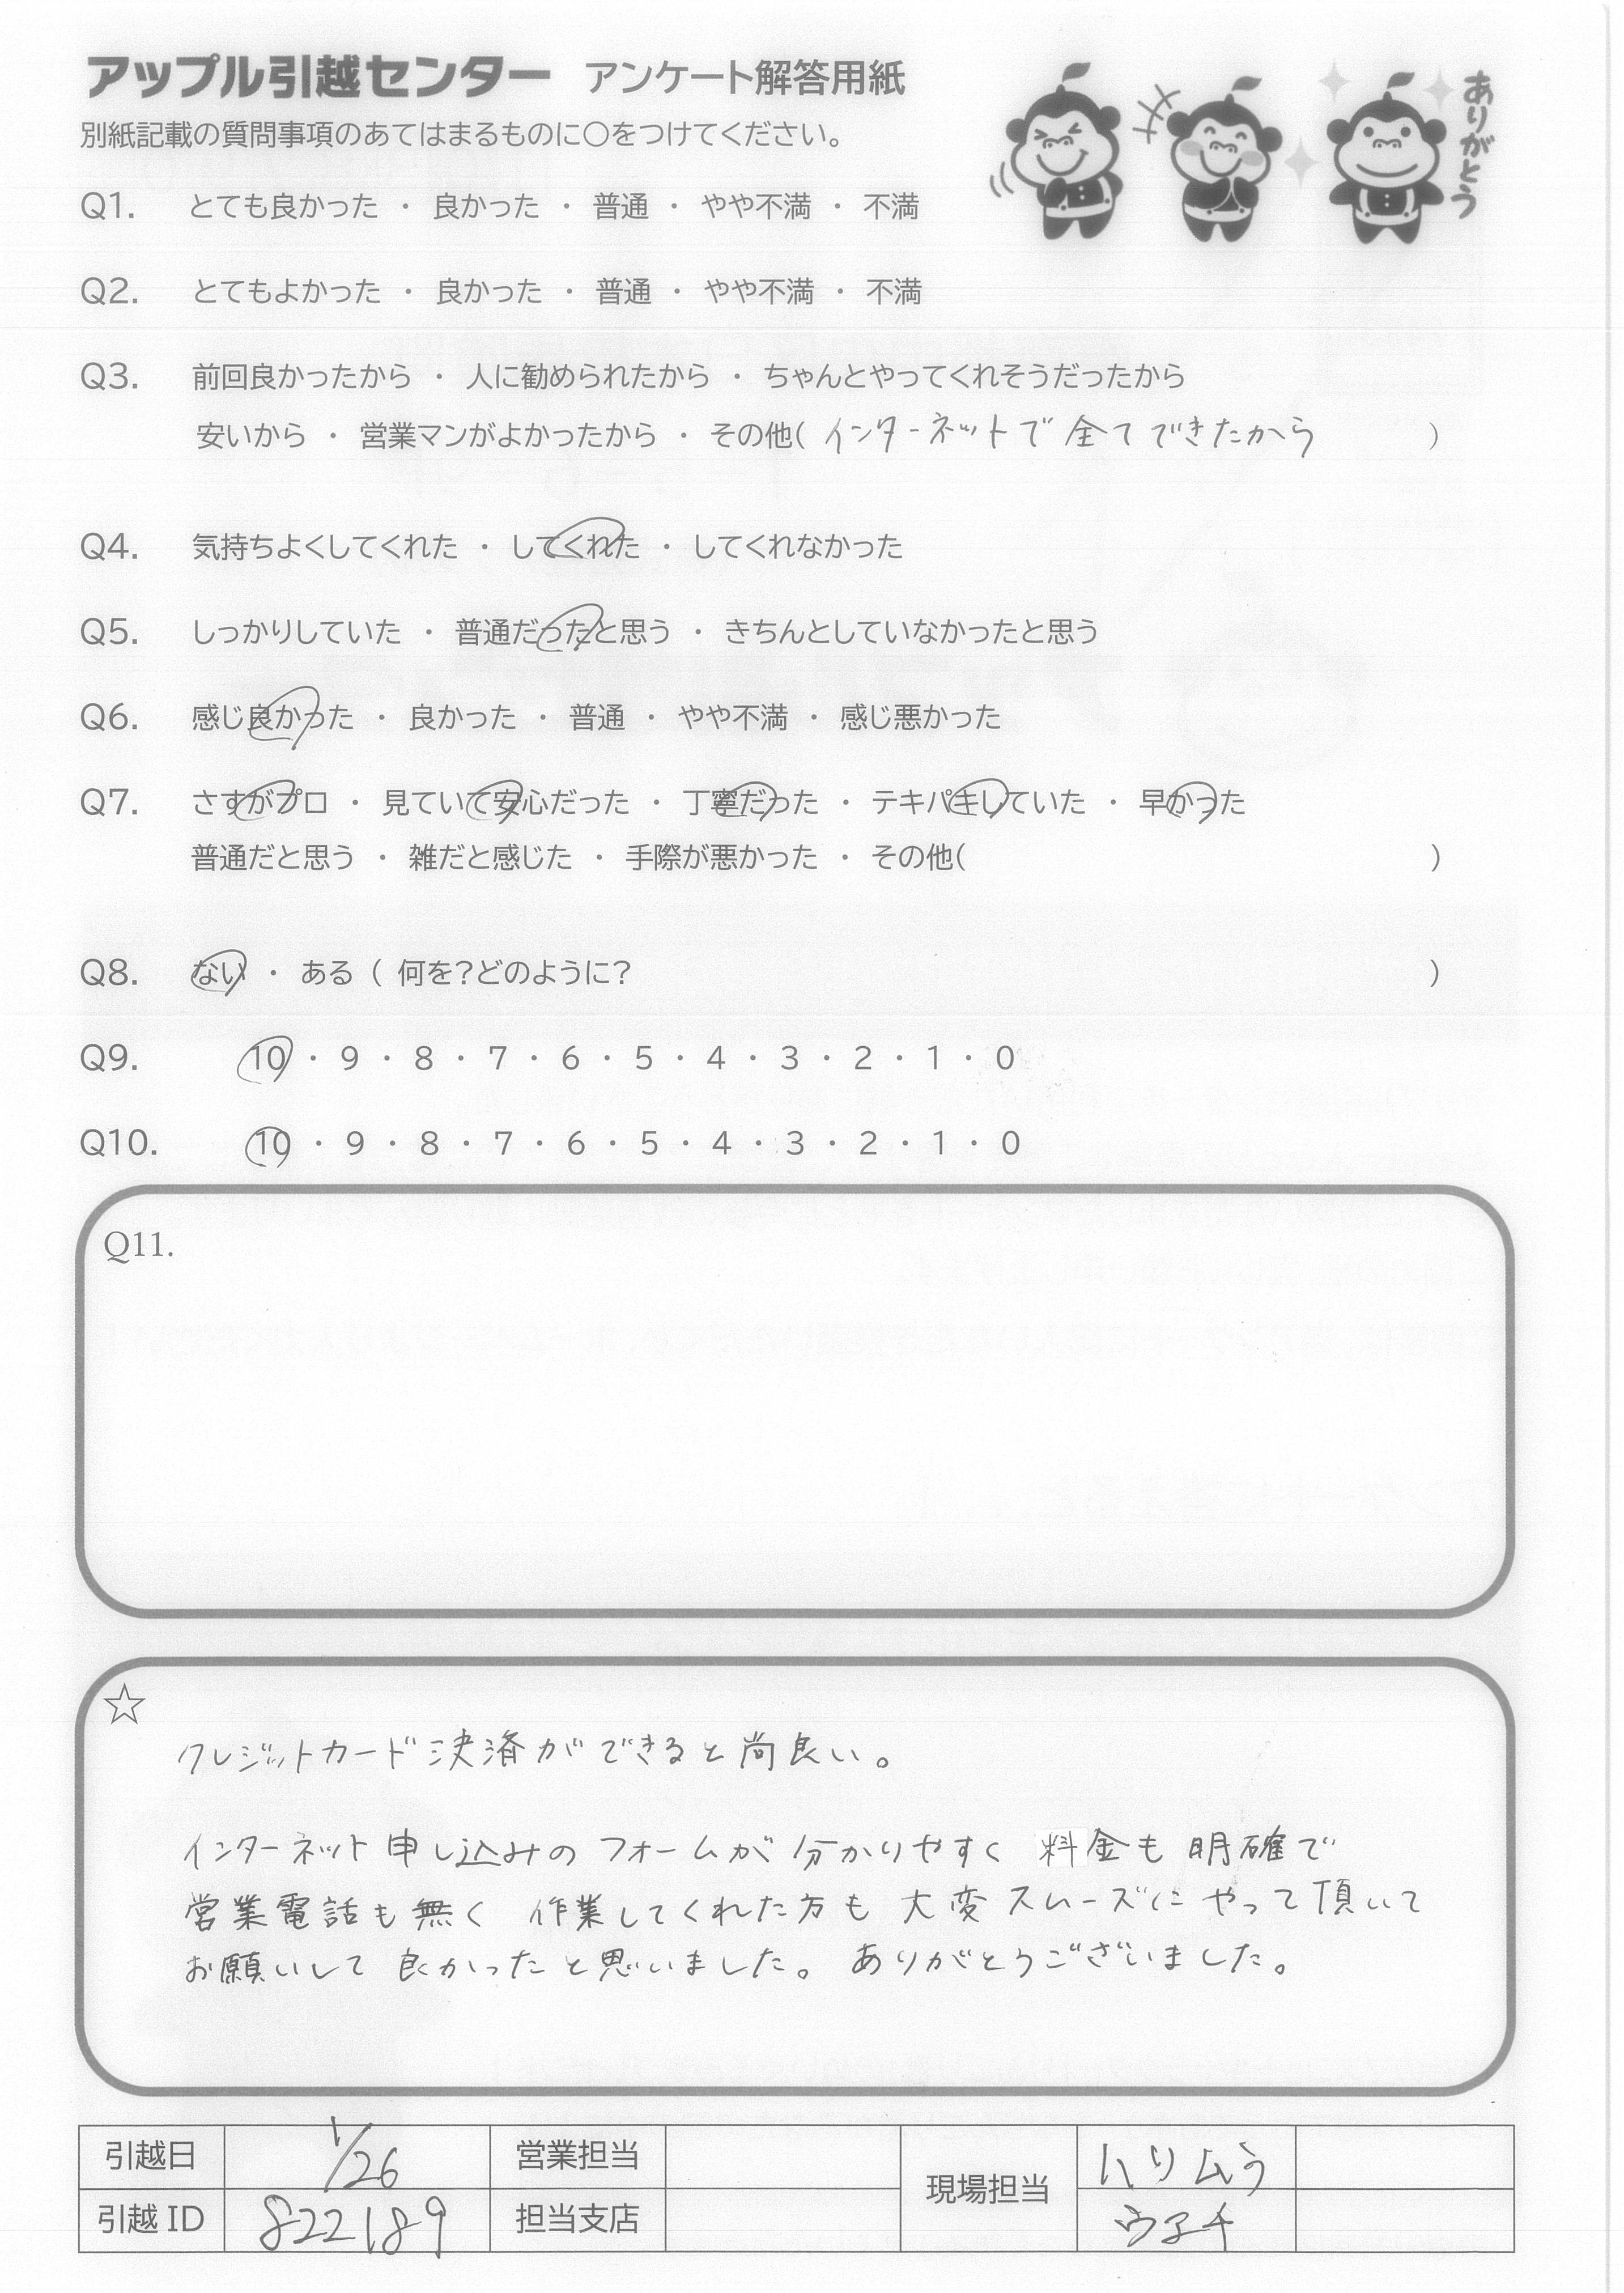 アップル引越センター アンケート解答用紙
別紙記載の質問事項のあてはまるものに〇をつけてください。
ありがとう
Q1. とても良かった ・ 良かった ・ 普通 ・ やや不満 ・ 不満
Q2. とてもよかった ・ 良かった ・ 普通 ・ やや不満 ・ 不満
Q3. 前回良かったから ・ 人に勧められたから ・ ちゃんとやってくれそうだったから
安いから ・ 営業マンがよかったから ・ その他( インターネットで 全て できたから )
Q4. 気持ちよくしてくれた ・ してくれた ・ してくれなかった
Q5. しっかりしていた ・ 普通だったと思う ・ きちんとしていなかったと思う
Q6. 感じ良かった ・ 良かった ・ 普通 ・ やや不満 ・ 感じ悪かった
Q7. さすがプロ ・ 見ていて安心だった ・ 丁寧だった ・ テキパキしていた ・ 早かった
普通だと思う ・ 雑だと感じた ・ 手際が悪かった ・ その他( )
Q8. ない ・ ある ( 何を?どのように? )
Q9. 10 ・ 9 ・ 8 ・ 7 ・ 6 ・ 5 ・ 4 ・ 3 ・ 2 ・ 1 ・ 0
Q10. 10 ・ 9 ・ 8 ・ 7 ・ 6 ・ 5 ・ 4 ・ 3 ・ 2 ・ 1 ・ 0
Q11.
☆
クレジットカード決済ができると尚良い。
インターネット申し込みの フォームが 分かりやすく 料金も 明確で
営業電話も無く 作業してくれた方も 大変 スムーズに やって頂いて
お願いして 良かったと思いました。 ありがとうございました。
引越日 1/26 営業担当 現場担当
引越 ID 822189 担当支店